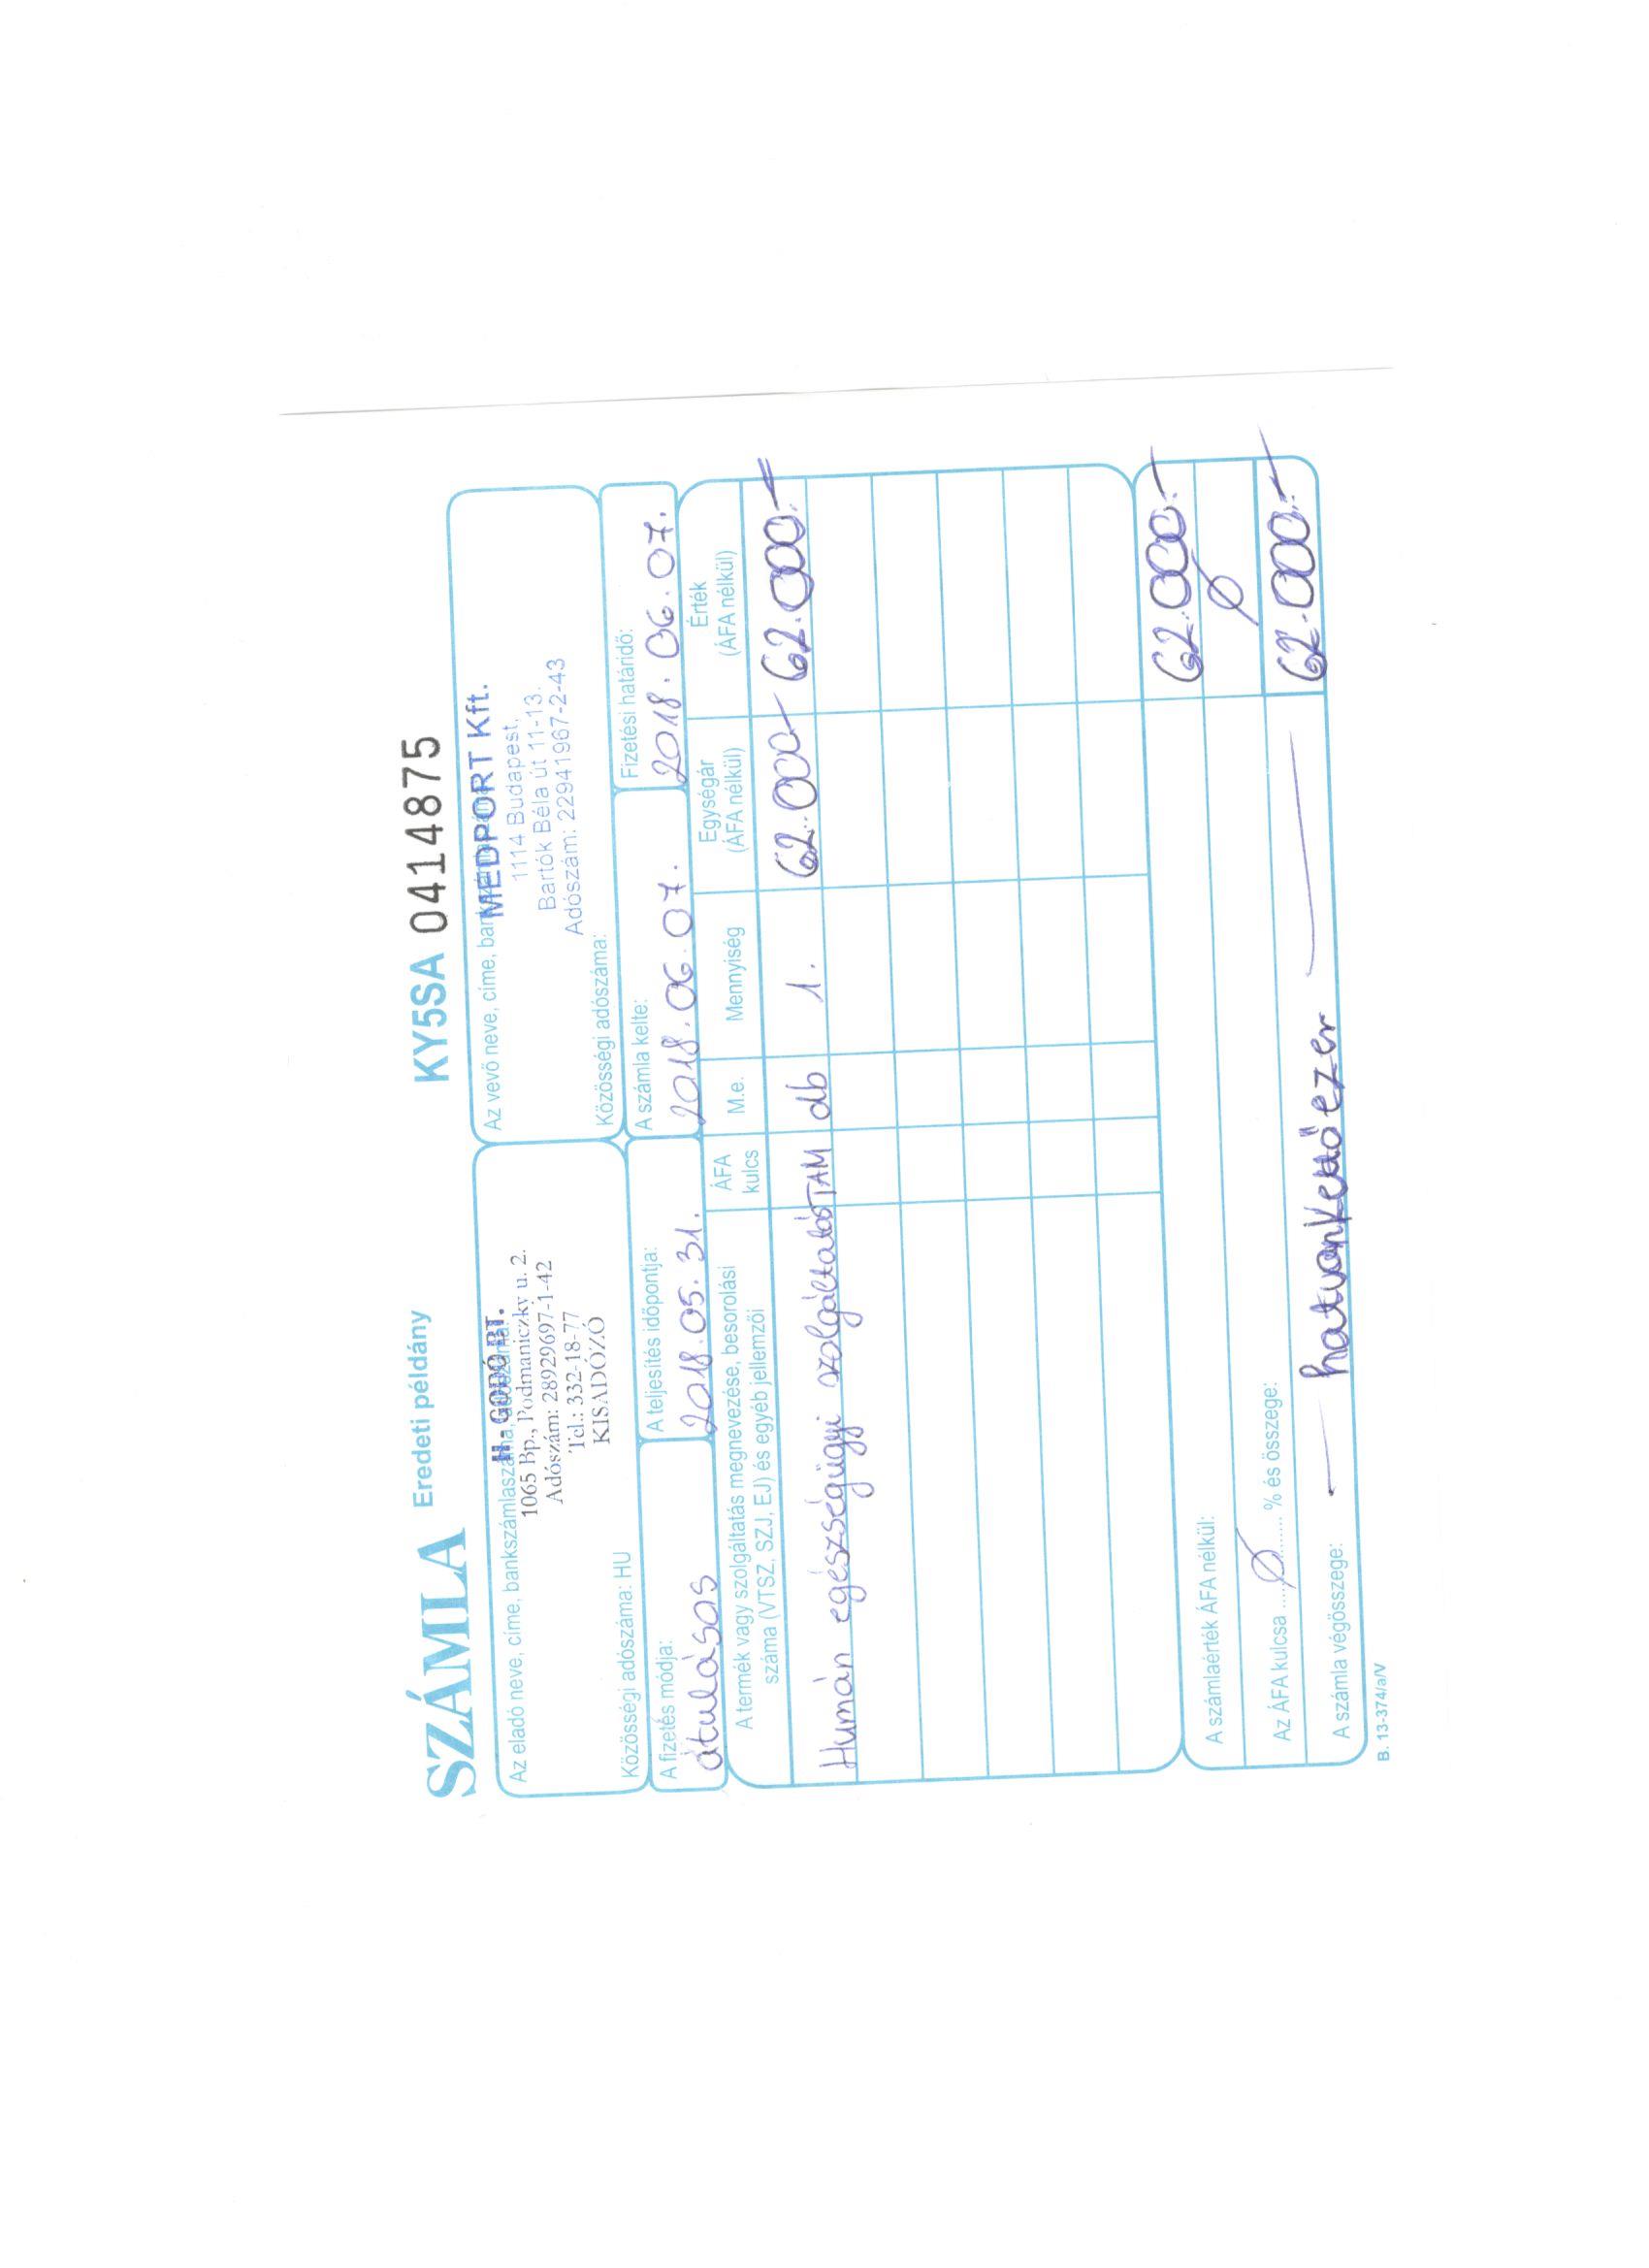 SZÁMLA Eredeti példány KY5SA 0414875
Az eladó neve, címe, bankszámlaszáma, adószáma:
H. GODÓ BT.
1065 Bp., Podmaniczky u. 2.
Adószám: 28929697-1-42
Tel.: 332-18-77
KISADÓZÓ
Közösségi adószáma: HU
Az vevő neve, címe,
MEDPORT Kft.
1114 Budapest,
Bartók Béla út 11-13.
Adószám: 22941967-2-43
Közösségi adószáma:
A fizetés módja: A teljesítés időpontja: A számla kelte: Fizetési határidő:
átulásos 2018.05.31. 2018.06.07. 2018.06.07.
A termék vagy szolgáltatás megnevezése, besorolási
száma (VTSZ, SZJ, EJ) és egyéb jellemzői
ÁFA
kulcs
M.e.
Mennyiség
Egységár
(ÁFA nélkül)
Érték
(ÁFA nélkül)
Humán egészségügyi szolgáltatás TAM db 1. 62.000- 62.000.-
A számlaérték ÁFA nélkül: 62.000.-
Az ÁFA kulcsa ..... Ø ..... % és összege: Ø
A számla végösszege: — hatvankettőezer — 62.000.-
B. 13-374/a/V